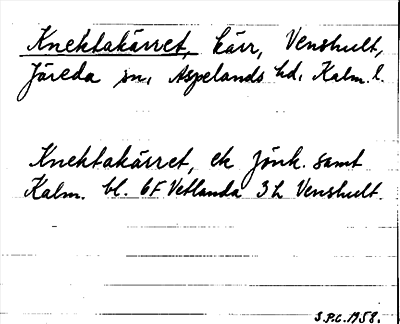 Knektakärret, kärr, Venshult,
Järeda sn, Aspelands hd, Kalm. l.
Knektakärret, ek Jönk. samt
Kalm. bl. 6F Vetlanda 3 h Venshult.
S.P.C. 1958.